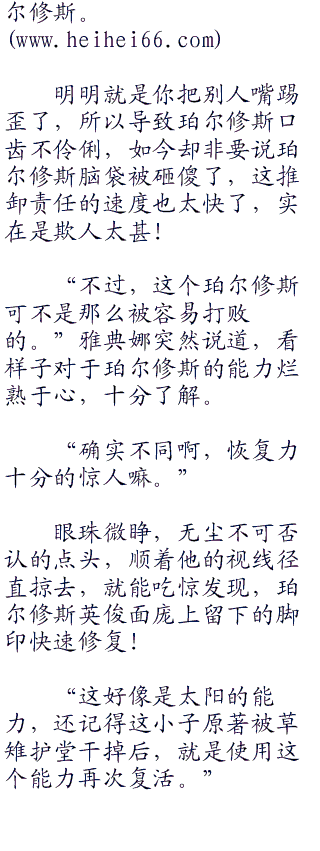 尔修斯。
(www.heihei66.com)
明明就是你把别人嘴踢
歪了，所以导致珀尔修斯口
齿不伶俐，如今却非要说珀
尔修斯脑袋被砸傻了，这推
卸责任的速度也太快了，实
在是欺人太甚！
“不过，这个珀尔修斯
可不是那么被容易打败
的。”雅典娜突然说道，看
样子对于珀尔修斯的能力烂
熟于心，十分了解。
“确实不同啊，恢复力
十分的惊人嘛。”
眼珠微睁，无尘不可否
认的点头，顺着他的视线径
直掠去，就能吃惊发现，珀
尔修斯英俊面庞上留下的脚
印快速修复！
“这好像是太阳的能
力，还记得这小子原著被草
雉护堂干掉后，就是使用这
个能力再次复活。”